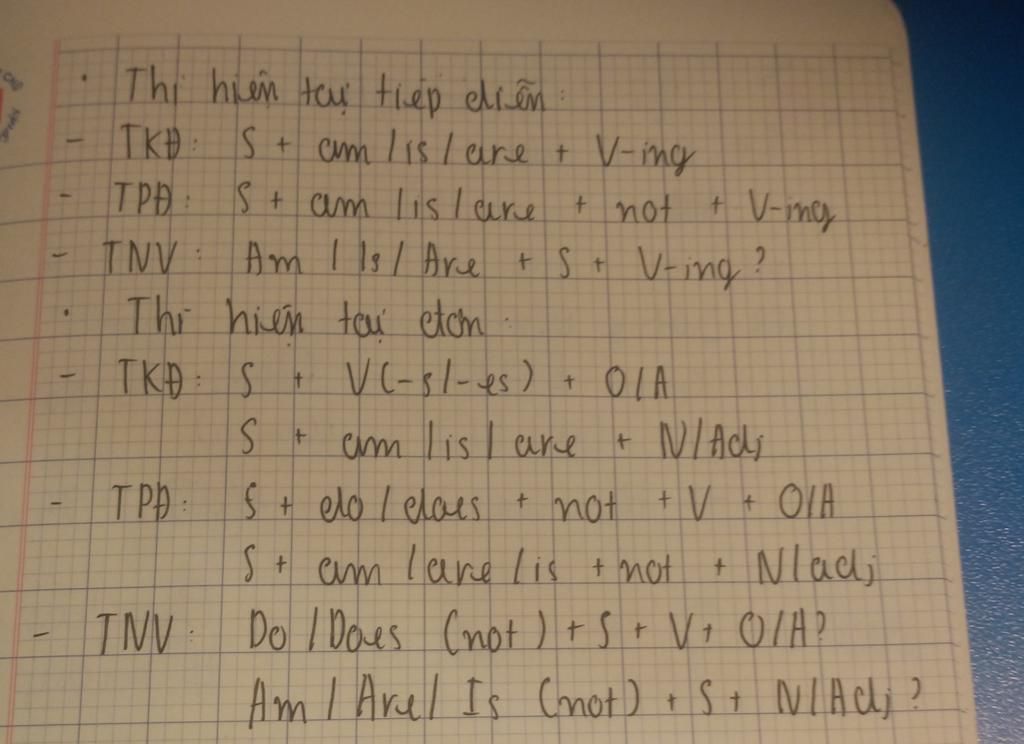 • Thì hiện tại tiếp diễn:
- TKĐ: S + am / is / are + V-ing
- TPĐ: S + am / is / are + not + V-ing
- TNV: Am / Is / Are + S + V-ing?
• Thì hiện tại đơn:
- TKĐ: S + V(-s/-es) + O/A
S + am / is / are + N/Adj
- TPĐ: S + do / does + not + V + O/A
S + am / are / is + not + N/adj
- TNV: Do / Does (not) + S + V + O/A?
Am / Are / Is (not) + S + N/Adj?